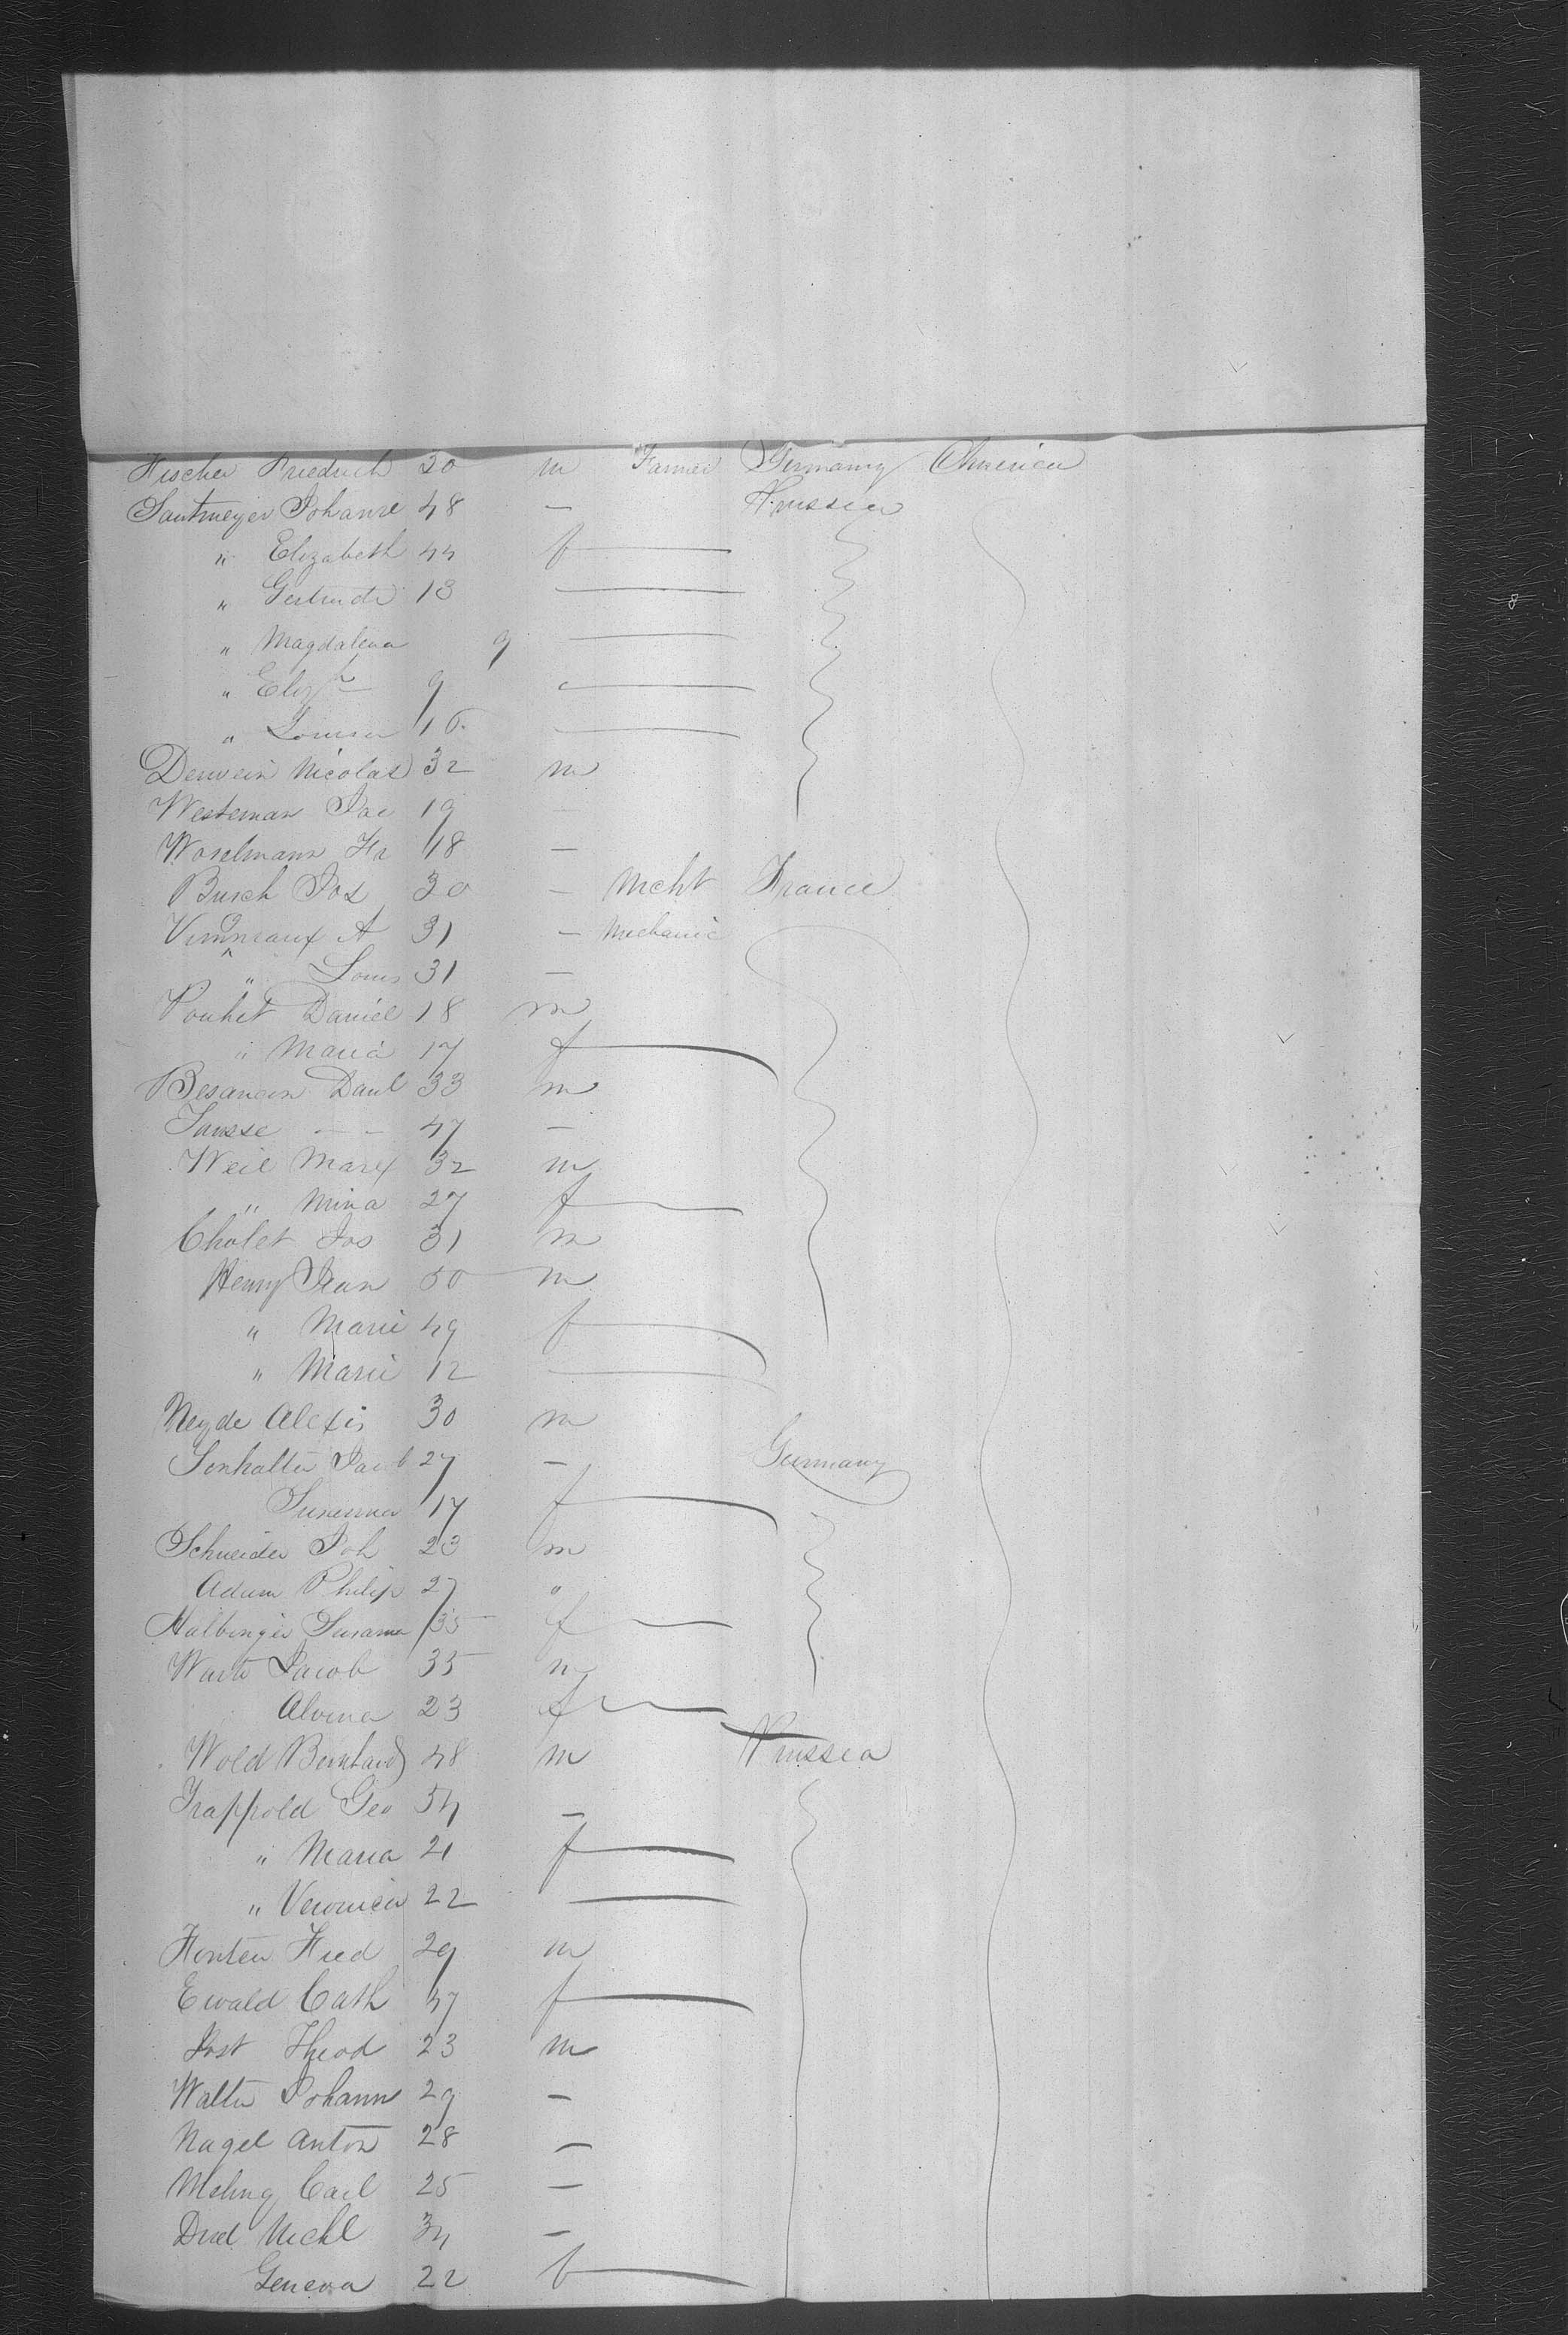 Fischer Friedrich 30 m Farmer Germany America
Santmeyer Johanne 48 — Prussia
" Elizabeth 44 f
" Gertrude 13
" Magdalena 9
" Eliz 9
" Louisa 16
Derwein Nicolas 32 m
Westeman Jac 19 —
Woselmann Fr 18 —
Busch Jos 30 — Mcht France
A 31 — Mechanic
" Louis 31 —
Pouhet Daniel 18 m
" Maria 17 f
Besancon Danl 33 m
Jausse — — 47 —
Weil Marx 32 m
" Mina 27 f
Cholet Jos 31 m
Henry Jean 50 m
" Marie 49 f
" Marie 12
Neyde Alexis 30 m
Senhalter Jacob 27 — Germany
Susanna 17 f
Schneider Joh 23 m
Adam Philip 27 "
Halbinger Susanna 35 f
Jacob 35 m
Alvina 23 f
Wold Bernhard 48 m Prussia
Trappold Geo 54 —
" Maria 21 f
" Veronica 22
Fred 29 m
Ewald Cath 47 f
Jost Theod 23 m
Walter Johann 29 —
Nagel Anton 28 —
Carl 25 —
Michl 34 —
Geneva 22 f